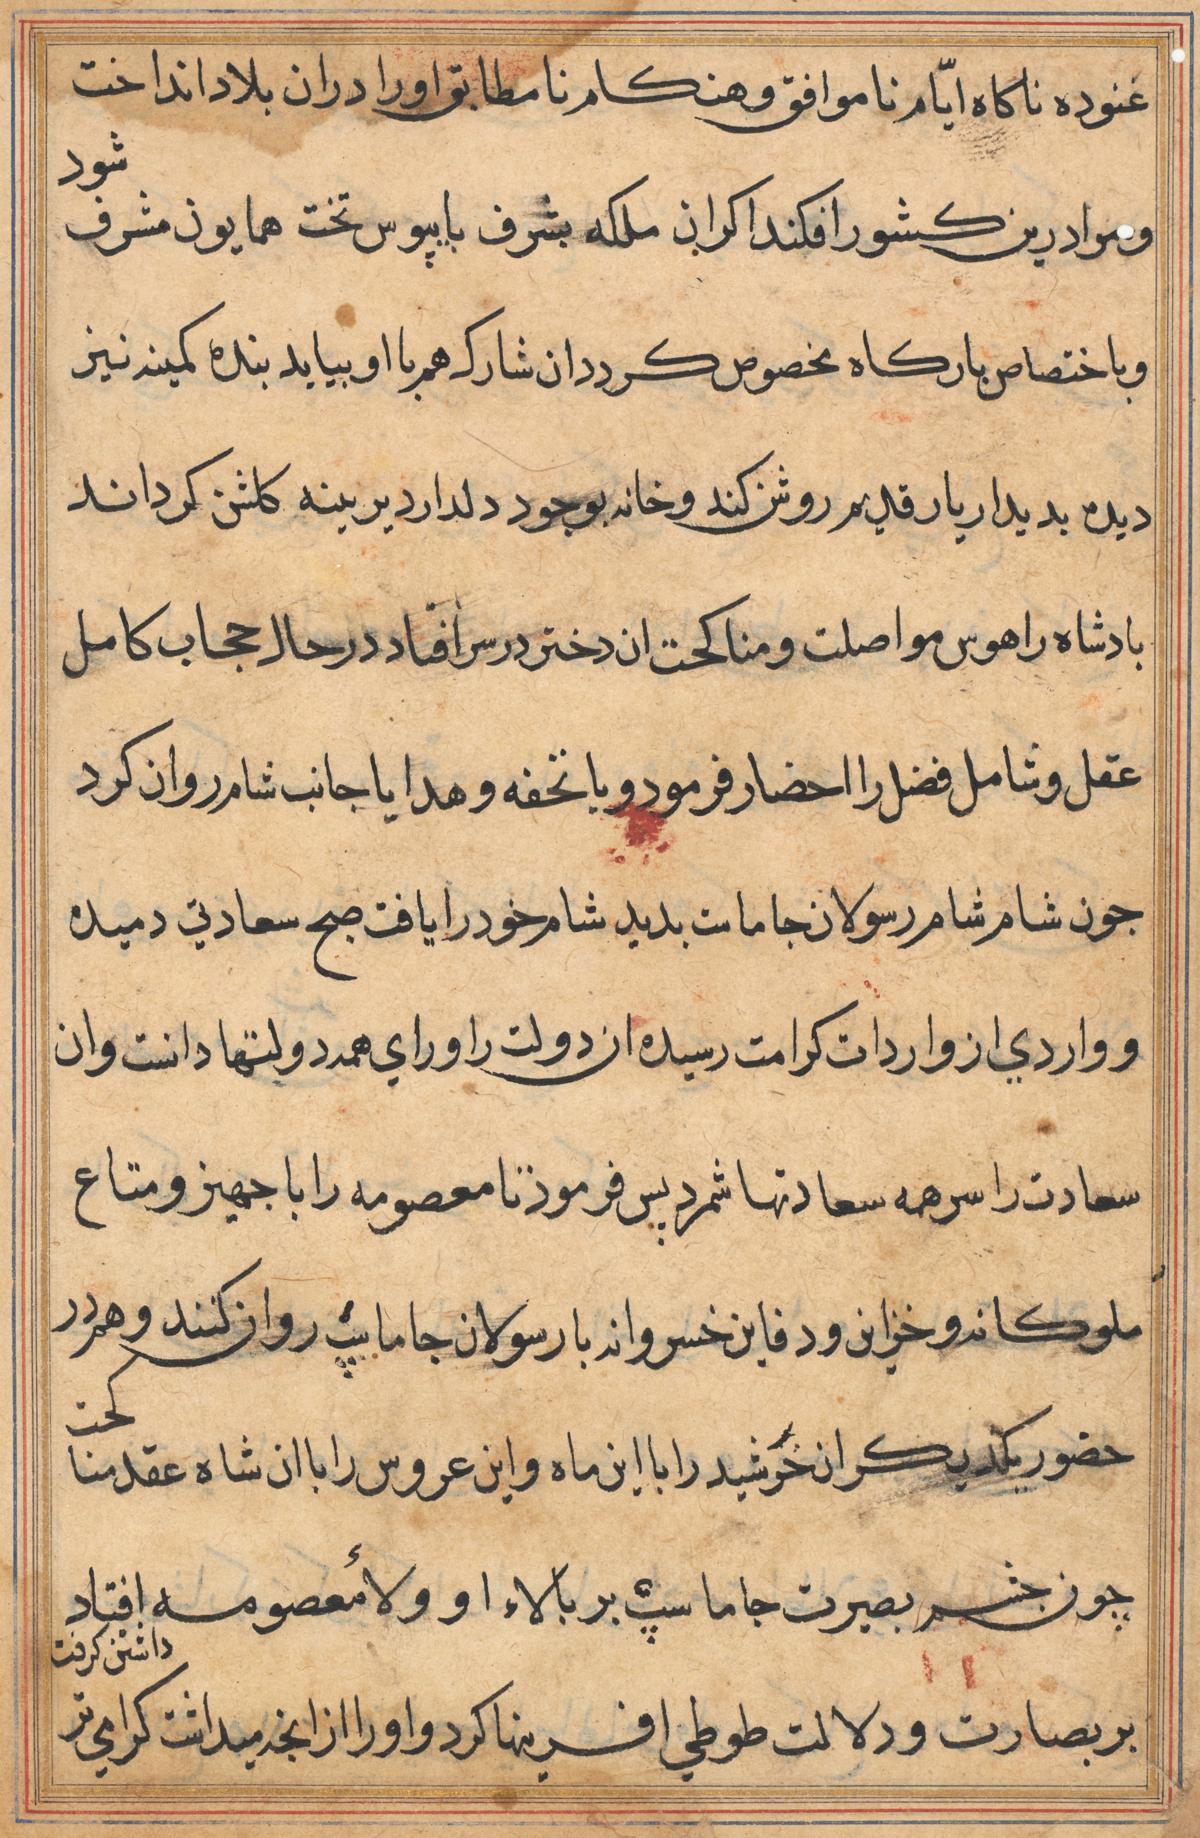 غنوده ناکاه ایّام ناموافق وهنکام نامطابق اورا دران بلاد انداخت
ومرا درین کشور افکند اکر ان ملکه بشرف پایبوس تخت همایون مشرف
شود
وباختصاص بارکاه مخصوص کردد ان شارک هم با او بیاید بندهٔ کمینه نیز
دیده بدیدار یار قدیم روشن کند وخانه بوجود دلدار دیرینه کلشن کرداند
بادشاه را هوس مواصلت ومناکحت ان دختر در سر افتاد در حال حجاب کامل
عقل وشامل فضل را احضار فرمود وبا تحفه وهدایا جانب شام روان کرد
جون شام شام رسولان جاماست بدید شام خود را یافت صبح سعادتي دمیده
وواردي از واردات کرامت رسیده ان دولت را وراي همه دولتها دانست وان
سعادت را سر همه سعادتها شمرد پس فرمود تا معصومه را با جهیز ومتاع
ملوکانه وخزاین ودفاین خسروانه با رسولان جاماسپ روان کنند وهم در
حضور یکدیکر ان خُرشید را با این ماه واین عروس را با ان شاه عقد منا
کحت
چون جشم بصیرت جاماسپ بر بالاء او وولاء معصومه افتاد
بر بصارت ودلالت طوطي افرینها کرد واورا از انجه میداشت کرامي تر
داشتن کرفت